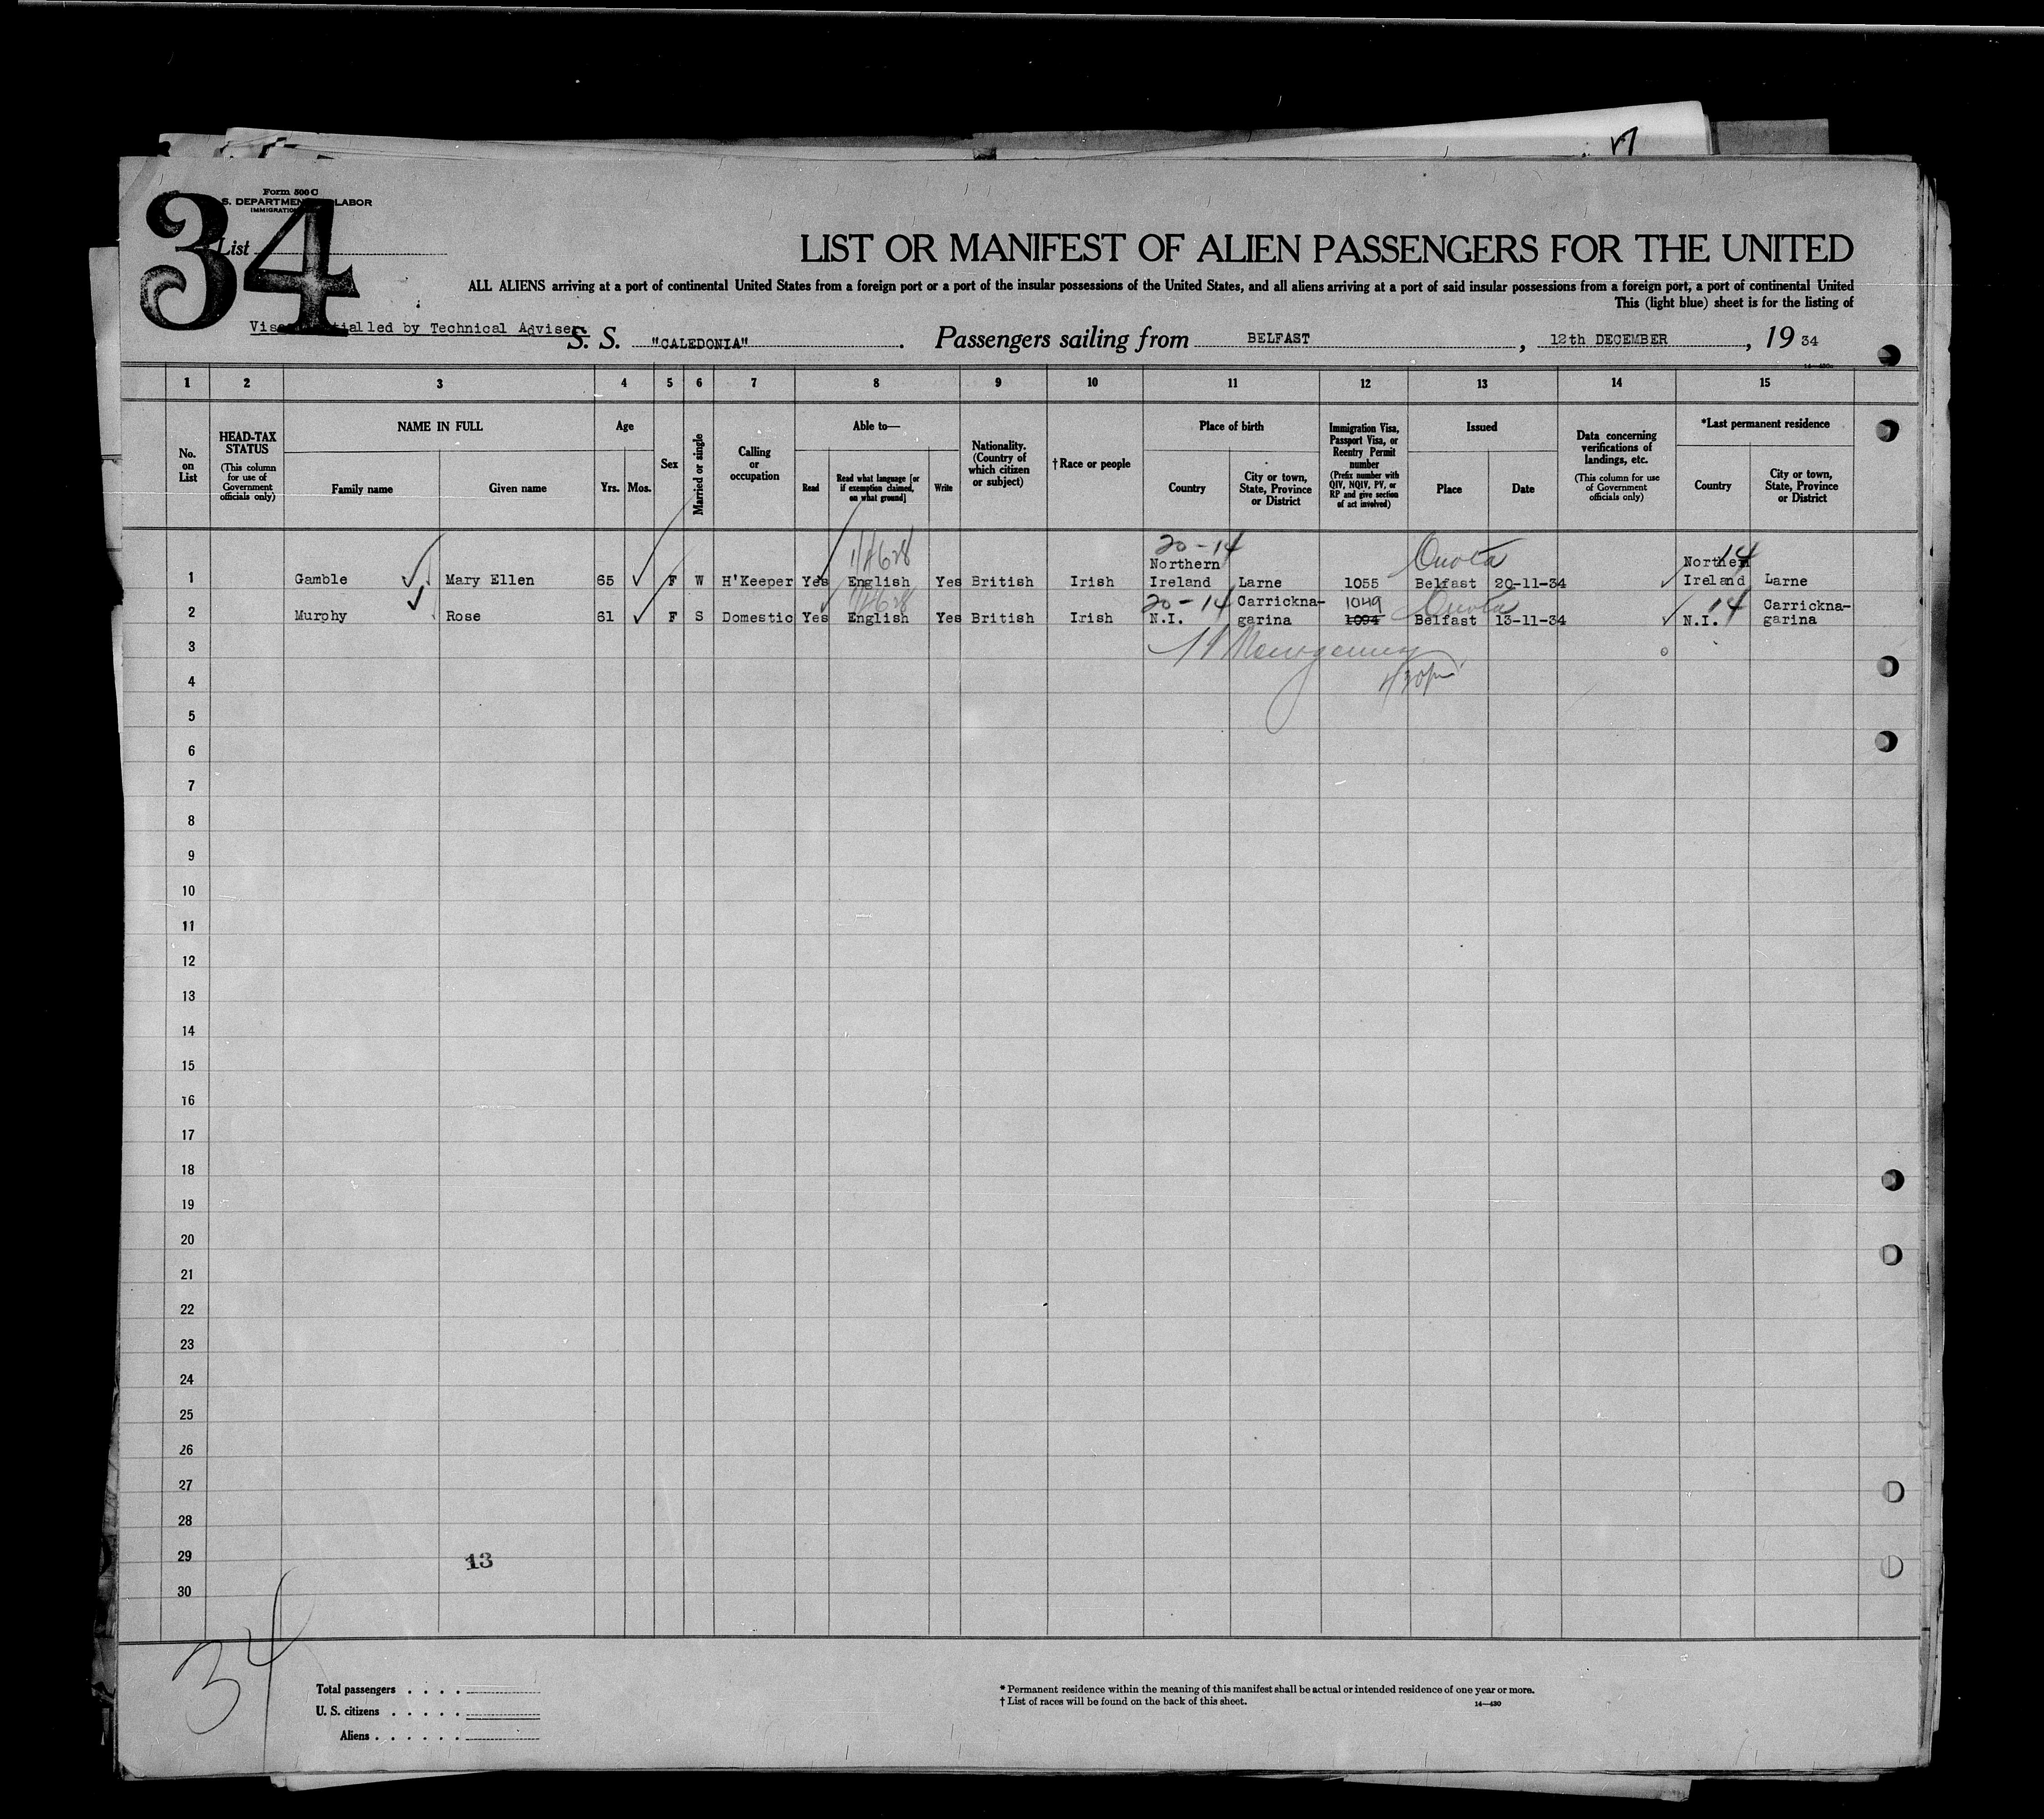 34
Form 500 C
S. DEPARTMEN LABOR
IMMIGRATION
List
LIST OR MANIFEST OF ALIEN PASSENGERS FOR THE UNITED
ALL ALIENS arriving at a port of continental United States from a foreign port or a port of the insular possessions of the United States, and all aliens arriving at a port of said insular possessions from a foreign port, a port of continental United
This (light blue) sheet is for the listing of
Visa initialled by Technical Adviser.
S. S. "CALEDONIA". Passengers sailing from BELFAST, 12th DECEMBER, 19 34
1 2 3 4 5 6 7 8 9 10 11 12 13 14 15
No. on List
HEAD-TAX STATUS (This column for use of Government officials only)
NAME IN FULL
Family name Given name
Age
Yrs. Mos.
Sex
Married or single
Calling or occupation
Able to—
Read Read what language [or if exemption claimed, on what ground] Write
Nationality. (Country of which citizen or subject)
†Race or people
Place of birth
Country City or town, State, Province or District
Immigration Visa, Passport Visa, or Reentry Permit number (Prefix number with QIV, NQIV, PV, or RP and give section of act involved)
Issued
Place Date
Data concerning verifications of landings, etc. (This column for use of Government officials only)
*Last permanent residence
Country City or town, State, Province or District
20-14 Quota 14
1 Gamble Mary Ellen 65 F W H'Keeper Yes English Yes British Irish Northern Ireland Larne 1055 Belfast 20-11-34 Northern Ireland Larne
20-14 1049 Quota 14
2 Murphy Rose 61 F S Domestic Yes English Yes British Irish N.I. Carrickna-garina 1094 Belfast 13-11-34 N.I. Carrickna-garina
3
4
5
6
7
8
9
10
11
12
13
14
15
16
17
18
19
20
21
22
23
24
25
26
27
28
29 13
30
34
Total passengers . . . .
U. S. citizens . . . . .
Aliens . . . . . .
* Permanent residence within the meaning of this manifest shall be actual or intended residence of one year or more.
† List of races will be found on the back of this sheet.
14—430